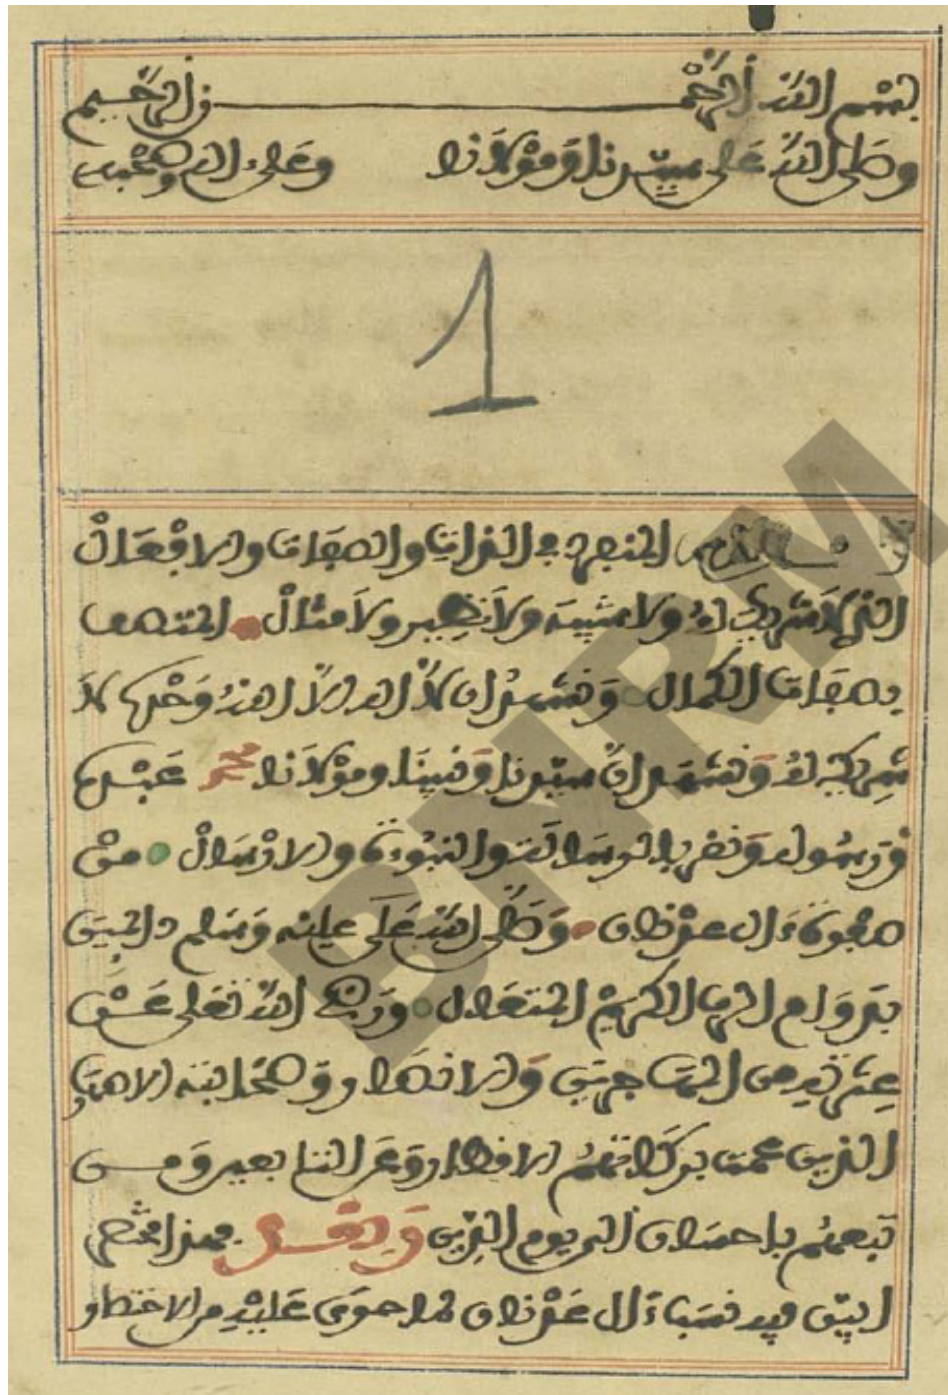 بسم الله الرحمن الرحيم
وصلى الله على سيدنا ومولانا وعلى اله وصحبه
1
المنفرد في الذات والصفات والافعال
الذي لا شريك له ولا شبيه ولا نظير ولا مثال المتصف
بصفات الكمال ونشهد ان لا اله الا الله وحده لا
شريك له ونشهد ان سيدنا ونبينا ومولانا محمد عبده
ورسوله ونقر بالرسالة والنبوءة والارسال من
صفوة ءال عدنان وصلى الله عليه وسلم
بدوام الكريم المتعال ورضي الله تعلى عن
عترته من المهاجرين والانصار وصحابته
الذين عمت بركاتهم الاقطار وعن التابعين ومن
تبعهم باحسان الى يوم الدين وبعد فهذا مختصر
ابين فيه نسب ءال عدنان لما حوى عليه من الاختصار
BNRM